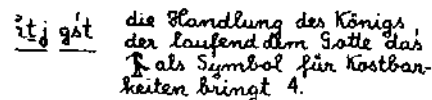 ỉṯj gśt die Handlung des Königs
der laufend dem Gotte das
als Symbol für Kostbar-
keiten bringt 4.